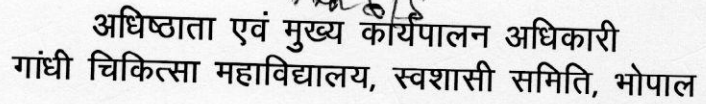 अधिष्ठाता एवं मुख्य कार्यपालन अधिकारी
गांधी चिकित्सा महाविद्यालय, स्वशासी समिति, भोपाल